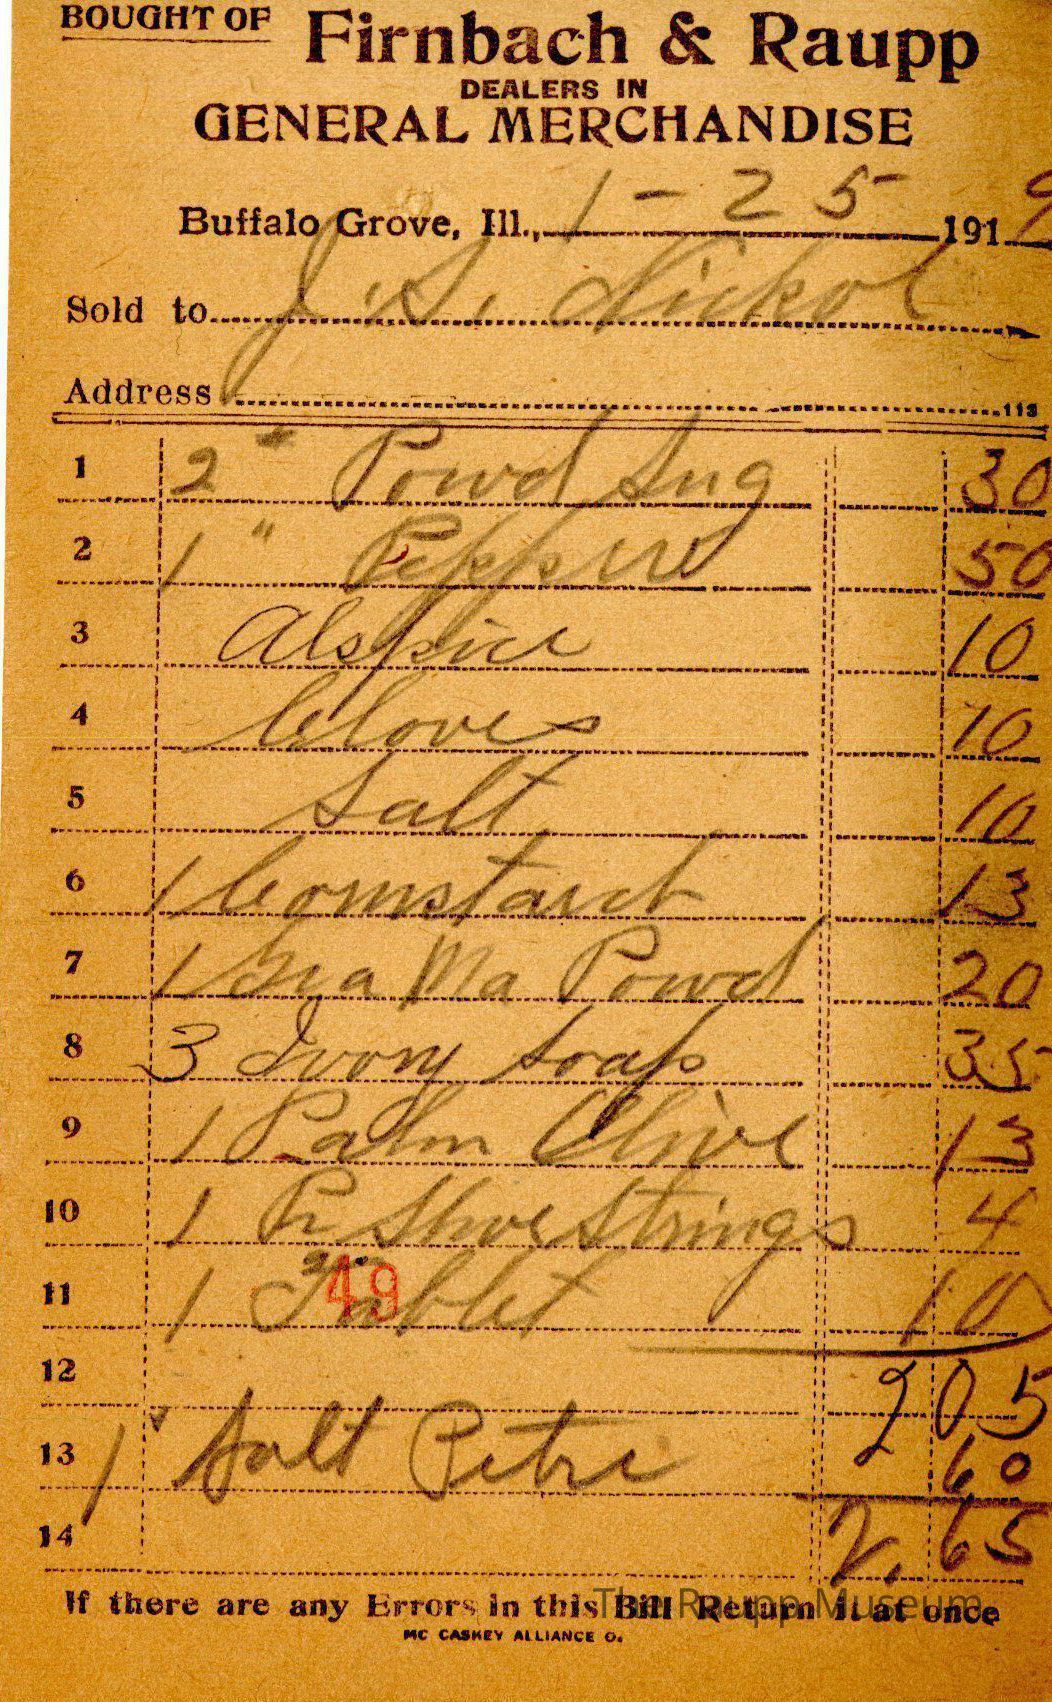 BOUGHT OF
Firnbach & Raupp
DEALERS IN
GENERAL MERCHANDISE
Buffalo Grove, Ill., 1-25 1919
Sold to J. S. Nickol
Address 113
1 2 " Powd Sug 30
2 1 " Pepper 50
3 Alspice 10
4 Cloves 10
5 Salt 10
6 1 Cornstarch 13
7 1 Gra Ma Powd 20
8 3 Ivory Soap 35
9 1 Palm Olive 13
10 1 Pr Shoe Strings 4
11 1 Tablet 10
49
12 2 05
13 1 " Salt Petre 60
14 2.65
If there are any Errors in this Bill Return it at once
MC CASKEY ALLIANCE O.
The Raupp Museum